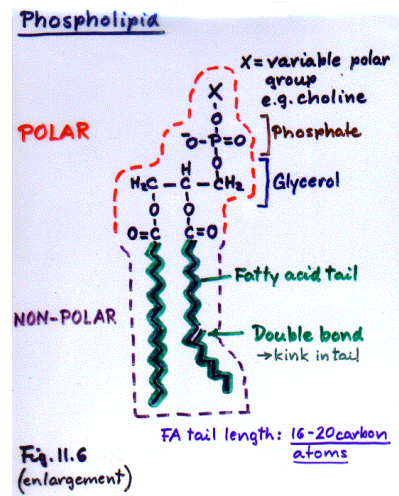 Phospholipid
X = variable polar
group
e.g. choline
X
O
POLAR
⁻O-P=O
Phosphate
O
H
H₂C - C - CH₂
Glycerol
O O
O=C C=O
Fatty acid tail
NON-POLAR
Double bond
→ kink in tail
FA tail length: 16-20 carbon
atoms
Fig. 11.6
(enlargement)